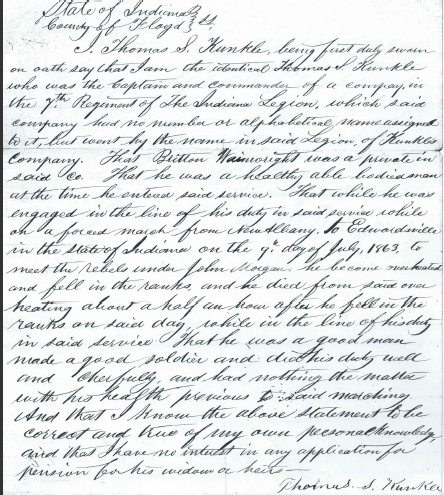 State of Indiana }
County of Floyd } SS
I, Thomas S. Kunkle, being first duly sworn
on oath say that I am the identical Thomas S Kunkle
who was the Captain and commander of a company, in
the 7th Regiment of The Indiana Legion, which said
company had no number or alphabetical name assigned
to it, but went by the name in said Legion, of Kunkles
Company. That Britton Wainwright was a private in
said Co. That he was a healthy able bodied man
at the time he entered said service. That while he was
engaged in the line of his duty in said service while
on a forced march from New Albany, to Edwardsville
in the State of Indiana on the 9th day of July, 1863, to
meet the rebels under John Morgan. he become over heated
and fell in the ranks, and he died from said over
heating about a half an hour after he fell in the
ranks on said day, while in the line of his duty
in said service That he was a good man
made a good soldier and did his duty well
and cherfully, and had nothing the matter
with his health previous to said marching
And that I know the above statement to be
correct and true of my own personal knowledge
and that I have no interest in any application for
pension for his widow or heirs—
Thomas S. Kunkle